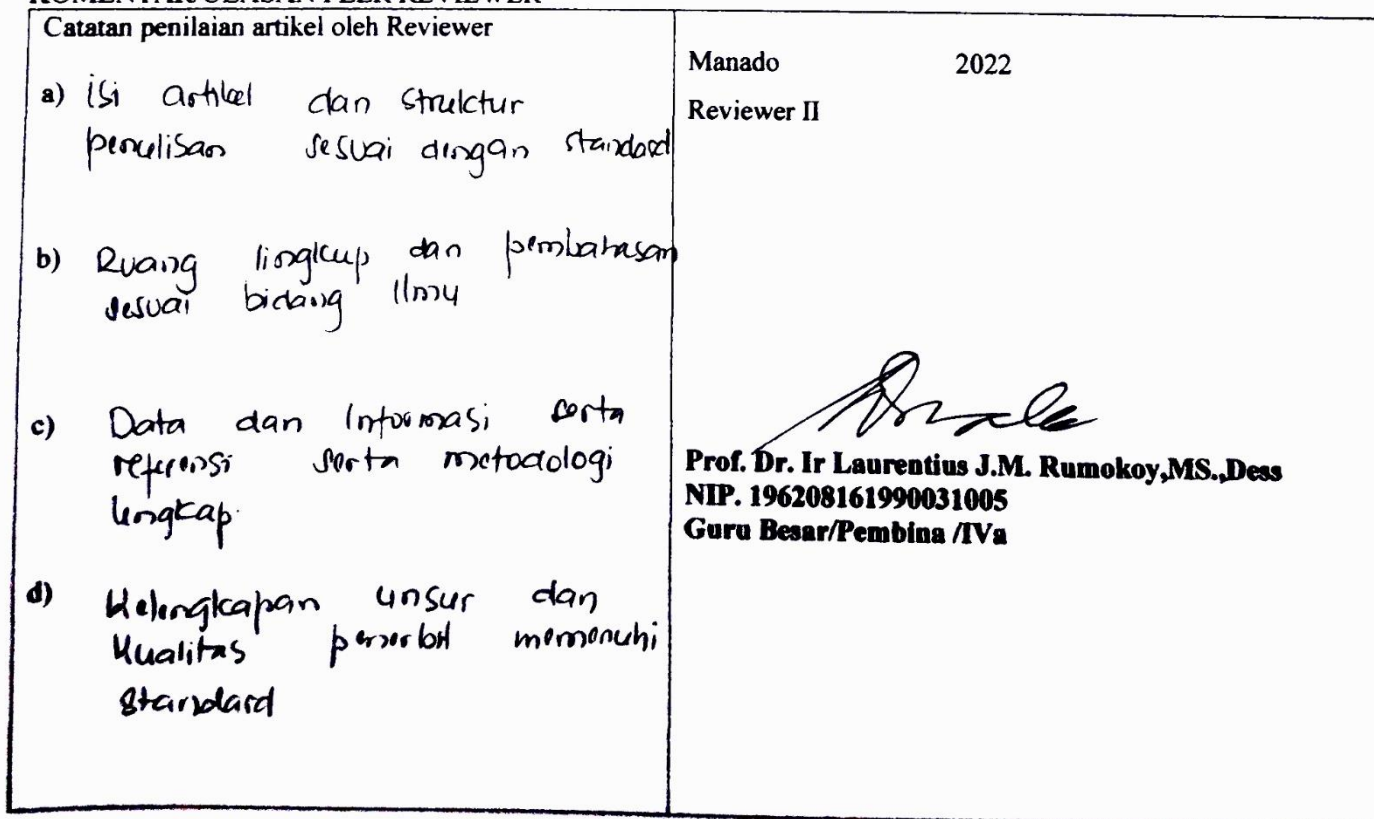 KOMENTAR ULASAN PEER REVIEWER
Catatan penilaian artikel oleh Reviewer
a) isi artikel dan struktur
penulisan sesuai dengan standard
b) Ruang lingkup dan pembahasan
sesuai bidang Ilmu
c) Data dan Informasi serta
referensi serta metodologi
lengkap.
d) Kelengkapan unsur dan
Kualitas penerbit memenuhi
standard
Manado 2022
Reviewer II
Prof. Dr. Ir Laurentius J.M. Rumokoy,MS.,Dess
NIP. 196208161990031005
Guru Besar/Pembina /IVa